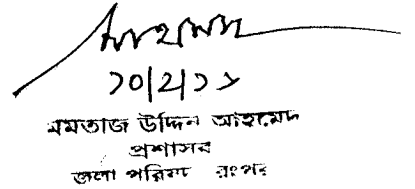 ১০/2/১১
মমতাজ উদ্দিন আহমেদ
প্রশাসক
জেলা পরিষদ রংপুর